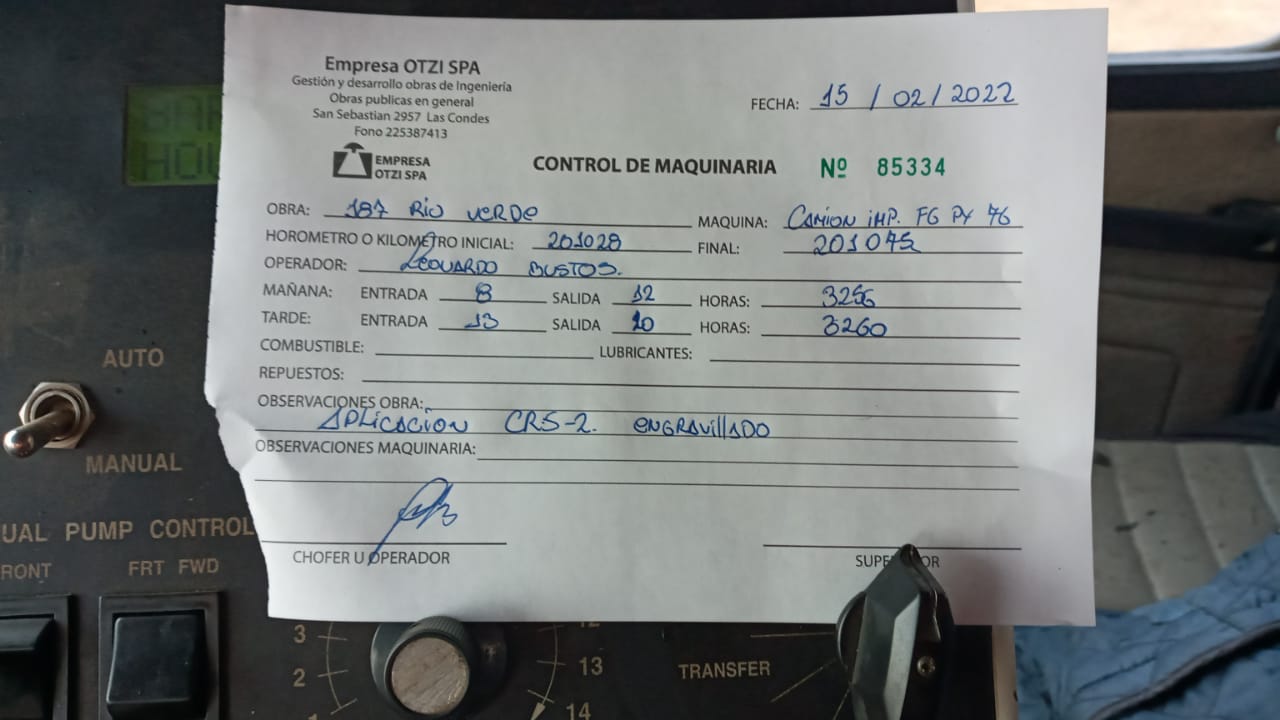 Empresa OTZI SPA
Gestión y desarrollo obras de Ingeniería
Obras publicas en general
San Sebastian 2957 Las Condes
Fono 225387413
EMPRESA
OTZI SPA
FECHA: 15 / 02 / 2022
CONTROL DE MAQUINARIA Nº 85334
OBRA: 187 Rio verde MAQUINA: Camion imp. FG PY 76
HOROMETRO O KILOMETRO INICIAL: 201028 FINAL: 201075
OPERADOR: Leonardo Bustos.
MAÑANA: ENTRADA 8 SALIDA 12 HORAS: 3256
TARDE: ENTRADA 13 SALIDA 20 HORAS: 3260
COMBUSTIBLE: LUBRICANTES:
REPUESTOS:
OBSERVACIONES OBRA:
Aplicación CRS-2. engravillado
OBSERVACIONES MAQUINARIA:
CHOFER U OPERADOR
AUTO
MANUAL
UAL PUMP CONTROL
RONT FRT FWD
3
2
1
12
13
14
TRANSFER